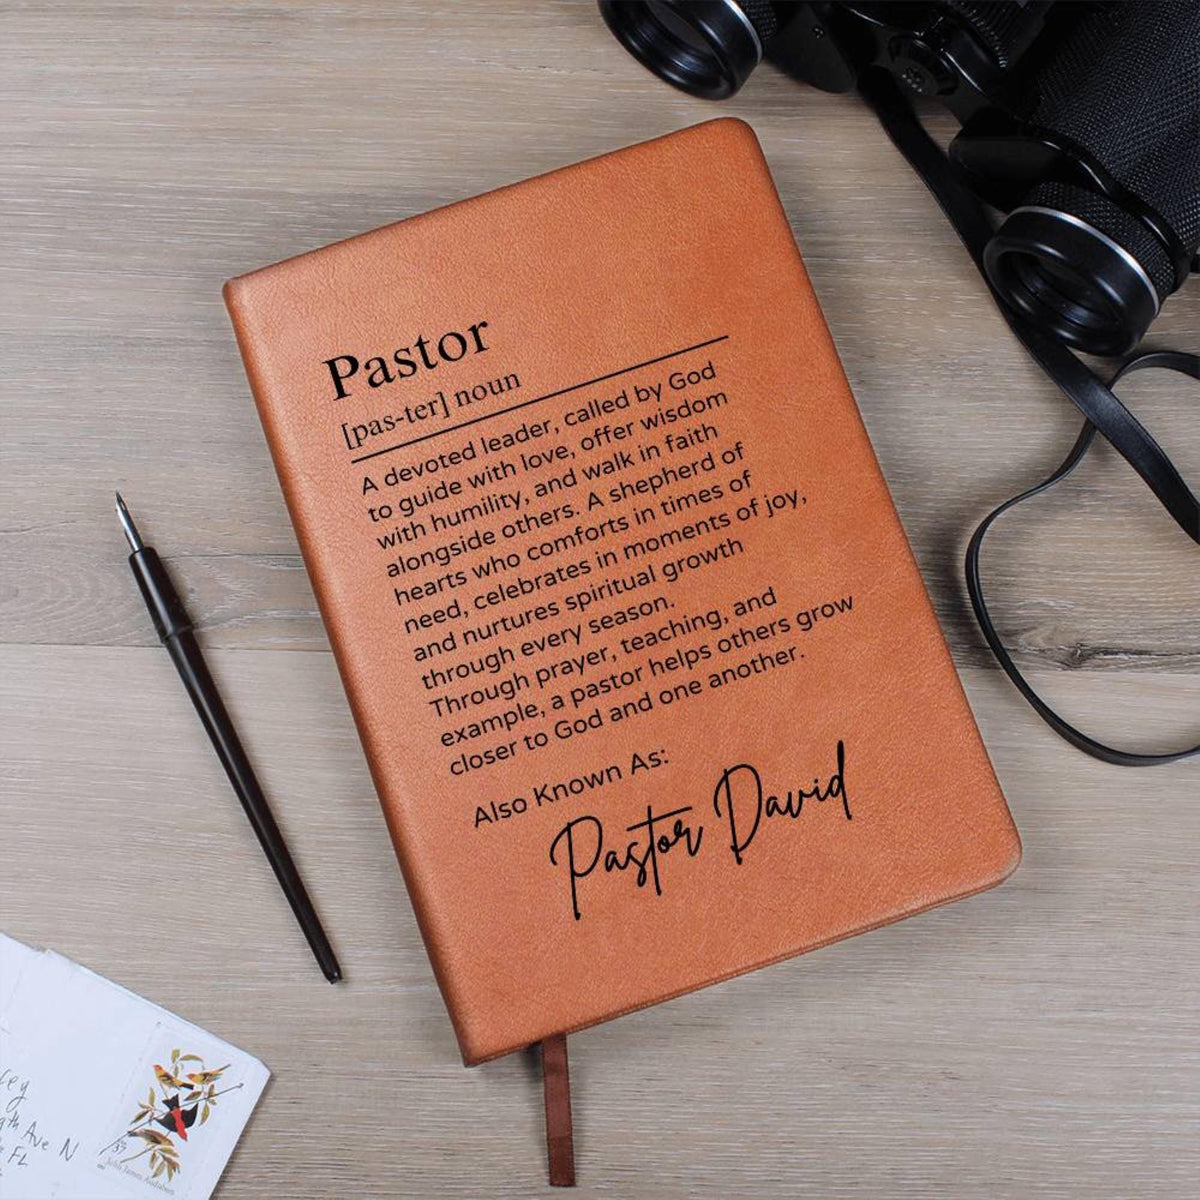 Pastor
[pas-ter] noun
A devoted leader, called by God
to guide with love, offer wisdom
with humility, and walk in faith
alongside others. A shepherd of
hearts who comforts in times of
need, celebrates in moments of joy,
and nurtures spiritual growth
through every season.
Through prayer, teaching, and
example, a pastor helps others grow
closer to God and one another.
Also Known As:
Pastor David
Ave N
FL
37
John James Audubon